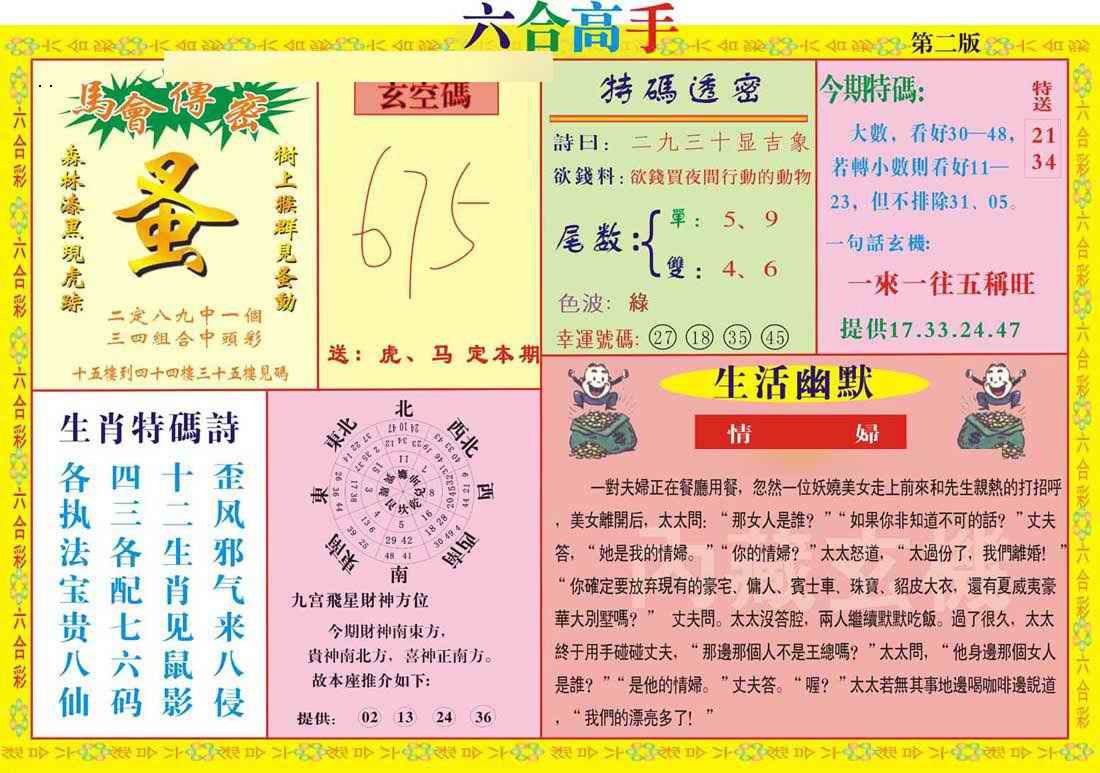 六合高手
第二版
馬會傳密
森林漆黑現虎踪
蚤
樹上猴群見蚤動
二定八九中一個
三四組合中頭彩
十五樓到四十四樓三十五樓見碼
玄空碼
675
送：虎、马 定本期
特碼透密
詩曰：二九三十显吉象
欲錢料：欲錢買夜間行動的動物
尾数：
單：5、9
雙：4、6
色波：綠
幸運號碼：27 18 35 45
今期特碼：
特送
21
34
大數，看好30—48，
若轉小數則看好11—
23，但不排除31、05。
一句話玄機：
一來一往五稱旺
提供17.33.24.47
生肖特碼詩
歪风邪气来八侵
十二生肖见鼠影
四三各配七六码
各执法宝贵八仙
北
東北
西北
東
西
東南
西南
南
九宫飛星財神方位
今期財神南東方，
貴神南北方，喜神正南方。
故本座推介如下：
提供： 02 13 24 36
生活幽默
情婦
一對夫婦正在餐廳用餐，忽然一位妖嬈美女走上前來和先生親熱的打招呼
，美女離開后，太太問：“那女人是誰？”“如果你非知道不可的話？”丈夫
答，“她是我的情婦。”“你的情婦？”太太怒道，“太過份了，我們離婚！”
“你確定要放弃現有的豪宅、傭人、賓士車、珠寶、貂皮大衣，還有夏威夷豪
華大別墅嗎？” 丈夫問。太太沒答腔，兩人繼續默默吃飯。過了很久，太太
終于用手碰碰丈夫，“那邊那個人不是王總嗎？”太太問，“他身邊那個女人
是誰？”“是他的情婦。”丈夫答。“喔？”太太若無其事地邊喝咖啡邊說道
，“我們的漂亮多了！”
六合彩